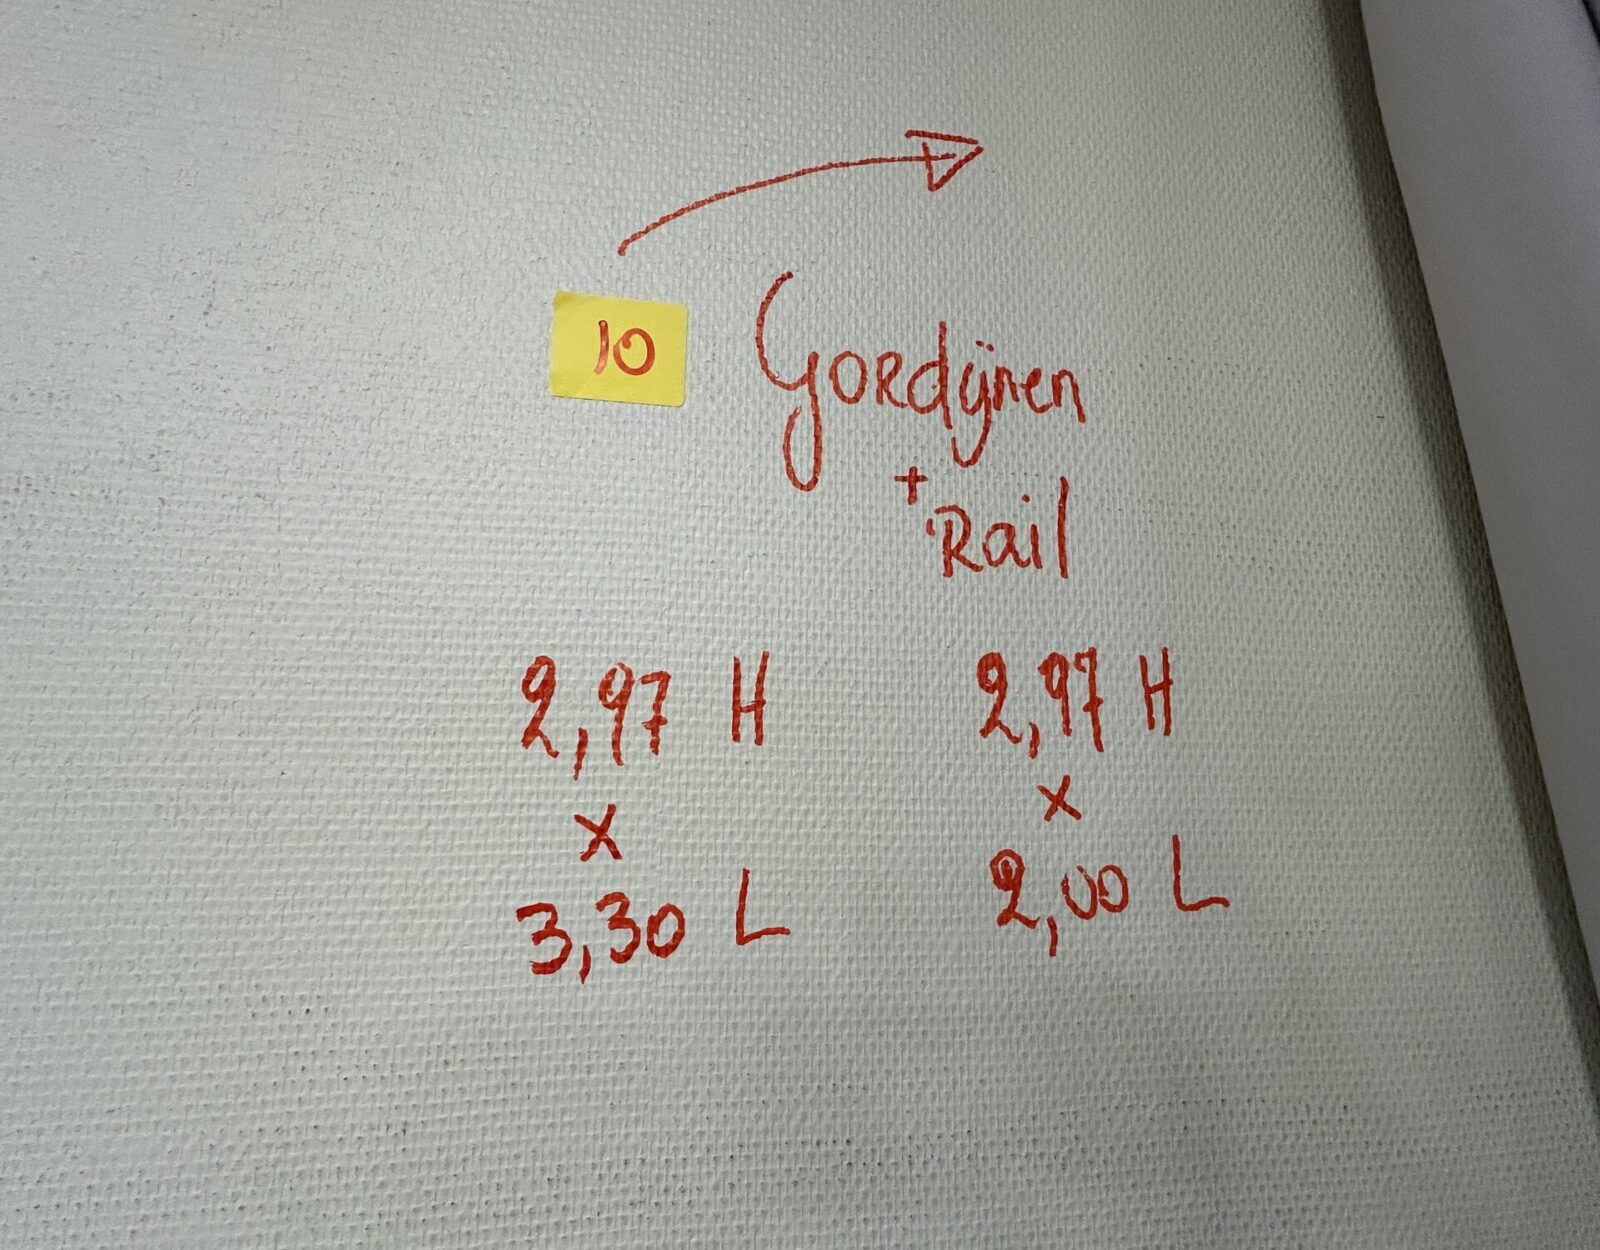 10 Gordijnen
+
Rail
2,97 H 2,97 H
x x
3,30 L 2,00 L